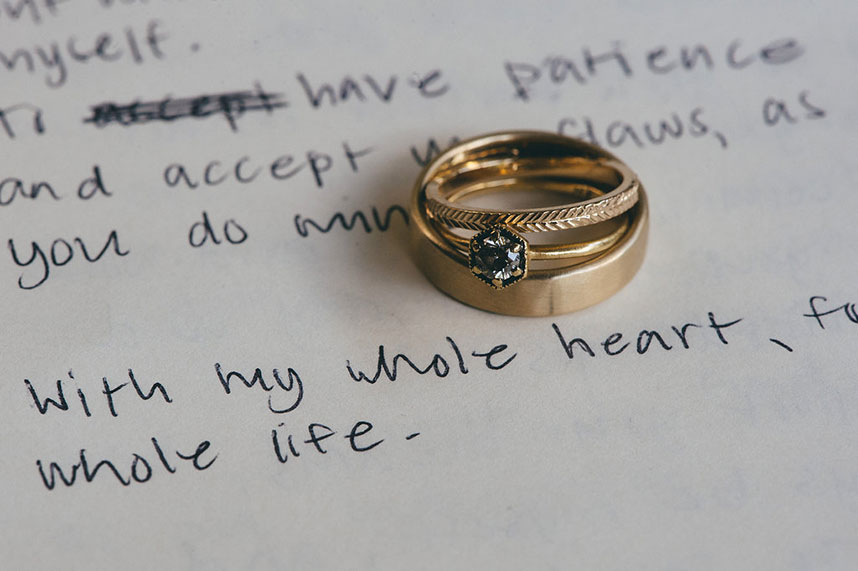 myself.
have patience
and accept flaws, as
you do
With my whole heart, 
whole life.